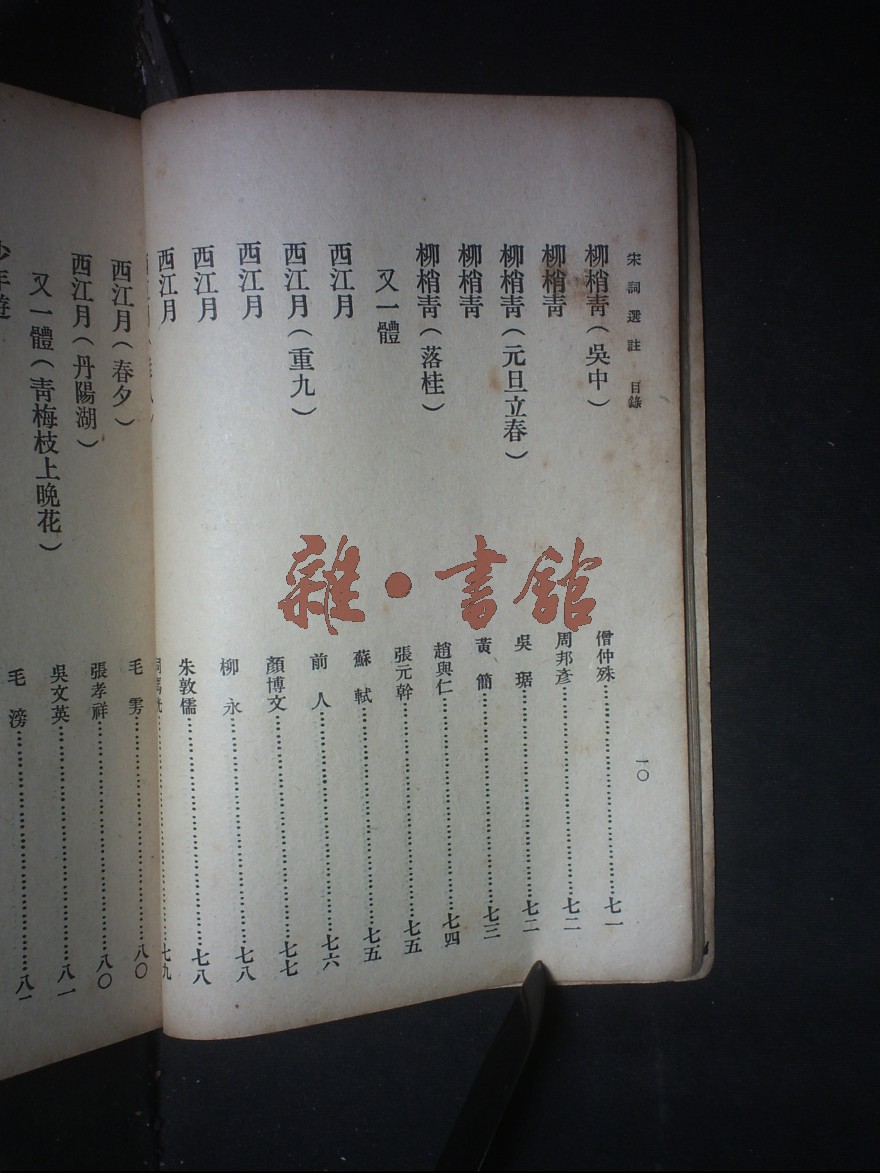 宋詞選註 目錄 一〇
柳梢青(吳中) 僧仲殊……七一
柳梢青 周邦彥……七二
柳梢青(元旦立春) 吳琚……七二
柳梢青 黃簡……七三
柳梢青(落桂) 趙與仁……七四
又一體 張元幹……七五
西江月 蘇軾……七五
西江月(重九) 前人……七六
西江月 顏博文……七七
西江月 柳永……七八
西江月 朱敦儒……七八
七九
西江月(春夕) 毛雱……八〇
西江月(丹陽湖) 張孝祥……八〇
又一體(青梅枝上晚花) 吳文英……八一
少年遊 毛滂……八一
雜·書館